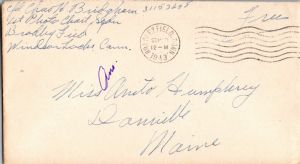 Cpl Chas H. Bridgham 31153258
1st Photo Chart. Sqdn
Bradley Field
Windsor Locks Conn.
Free
12-M
1943
Ans.
Miss Anita Humphrey
Danville
Maine